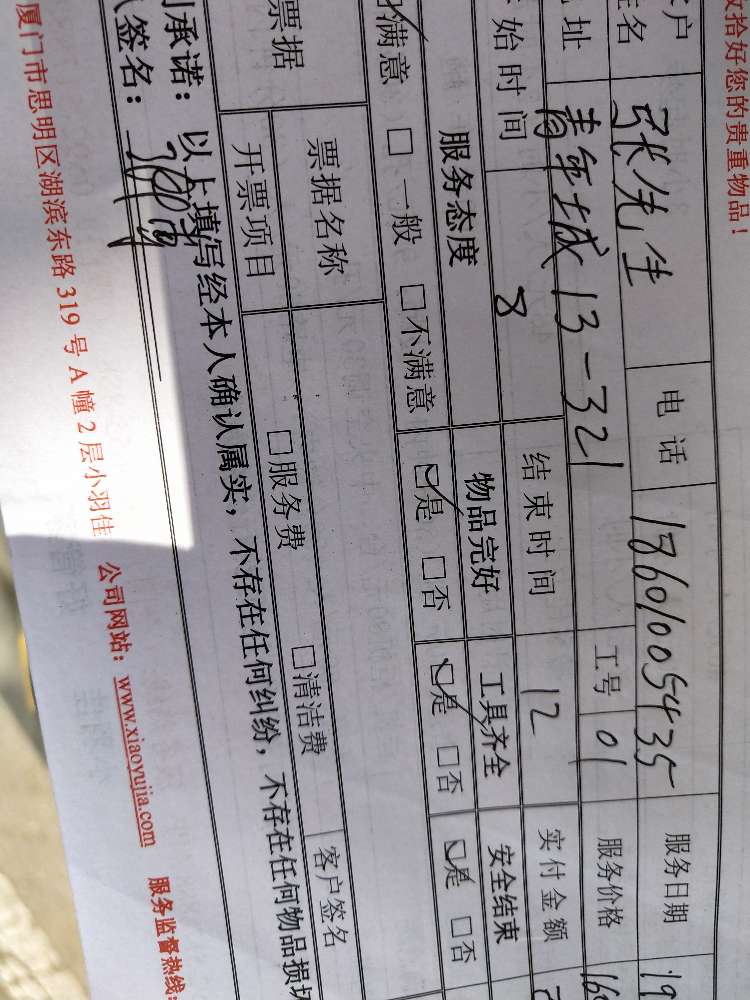 收拾好您的贵重物品！
客户姓名 张先生 电话 18601005435 服务日期 19
地址 青年城13-321 工号 01 服务价格 16
开始时间 8 结束时间 12 实付金额
服务态度 物品完好 工具齐全 安全结束
☑满意 □一般 □不满意 ☑是 □否 ☑是 □否 ☑是 □否
票据 票据名称 客户签名
开票项目 □服务费 □清洁费
承诺：以上填写经本人确认属实，不存在任何纠纷，不存在任何物品损坏
签名：
厦门市思明区湖滨东路319号A幢2层小羽佳 公司网站：www.xiaoyujia.com 服务监督热线：